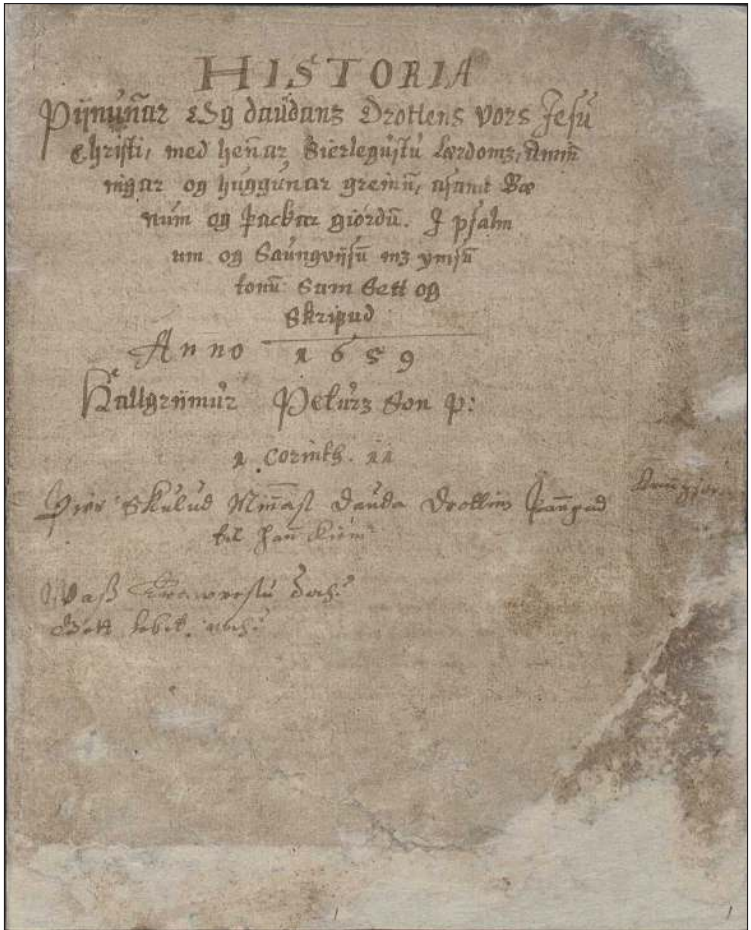 HISTORIA
Pijnun̄ar Og daudans Drottens vors Jesu
Christi, med hen̄ar Sierlegustu Lærdoms, Amin̄
nigar og huggunar greinū, asamt Bæ
num og þackar giördū. J psalm
um og Saungvijsū mz ymsū
tonū Sam Sett og
Skrifud
Anno 1659
Hallgrijmur Peturs Son p:
1 Corinth. 11
Þier Skulud Min̄ast Dauda Drottins Þan̄gad
til han̄ kiemr
Waß Trawrestu doch?
Gott lebet noch?